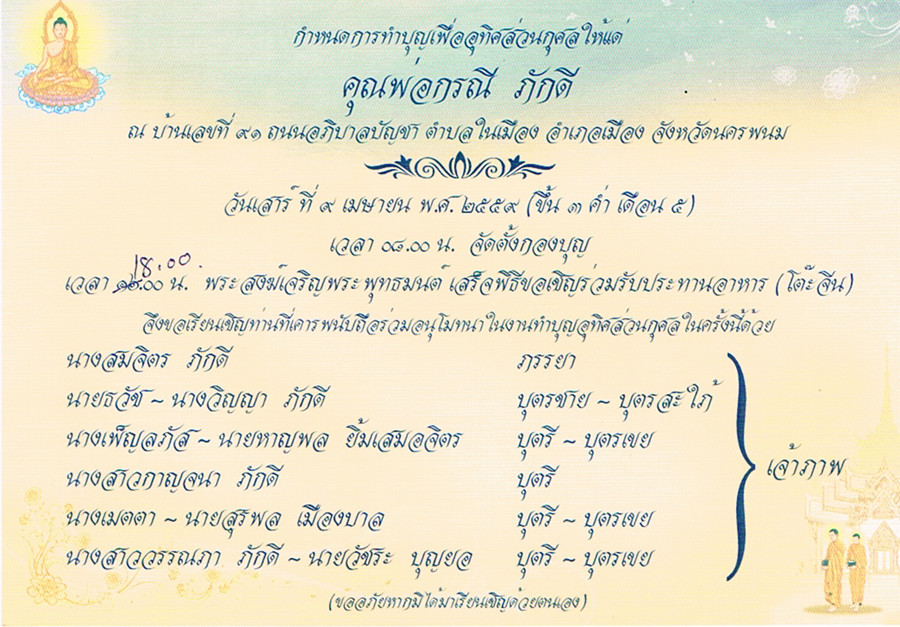 กำหนดการทำบุญเพื่ออุทิศส่วนกุศลให้แด่
คุณพ่อกรณี ภักดี
ณ บ้านเลขที่ ๙๑ ถนนอภิบาลบัญชา ตำบลในเมือง อำเภอเมือง จังหวัดนครพนม
วันเสาร์ ที่ ๙ เมษายน พ.ศ. ๒๕๕๙ (ขึ้น ๓ ค่ำ เดือน ๕)
เวลา ๐๘.๐๐ น. จัดตั้งกองบุญ
18.00
เวลา ๑๒.๐๐ น. พระสงฆ์เจริญพระพุทธมนต์ เสร็จพิธีขอเชิญร่วมรับประทานอาหาร (โต๊ะจีน)
จึงขอเรียนเชิญท่านที่เคารพนับถือร่วมอนุโมทนาในงานทำบุญอุทิศส่วนกุศลในครั้งนี้ด้วย
นางสมจิตร ภักดี ภรรยา
นายธวัช ~ นางวิญญา ภักดี บุตรชาย ~ บุตรสะใภ้
นางเพ็ญลภัส ~ นายหาญพล ยิ้มเสมอจิตร บุตรี ~ บุตรเขย
นางสาวกาญจนา ภักดี บุตรี
นางเมตตา ~ นายสุรพล เมืองบาล บุตรี ~ บุตรเขย
นางสาววรรณภา ภักดี ~ นายวัชระ บุญยอ บุตรี ~ บุตรเขย
เจ้าภาพ
(ขออภัยหากมิได้มาเรียนเชิญด้วยตนเอง)